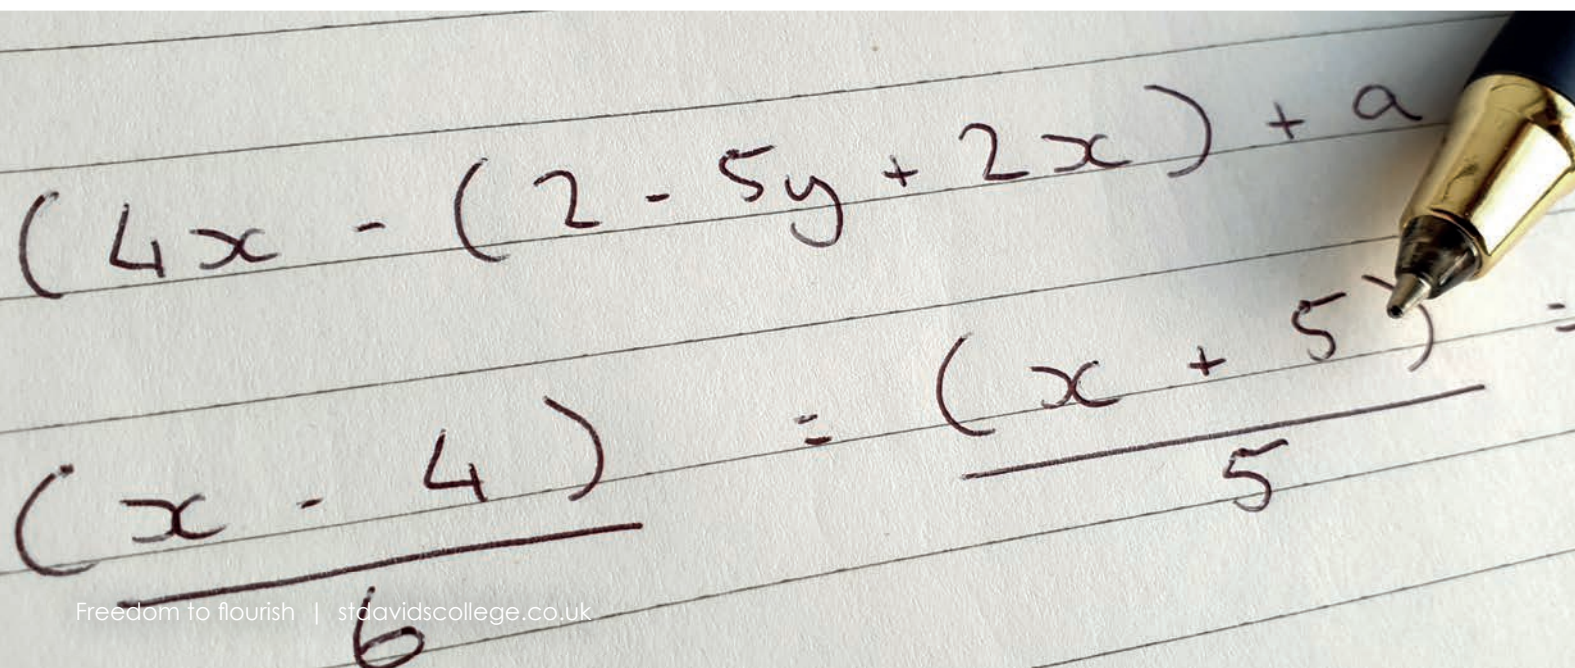 (4x - (2 - 5y + 2x) + a
(x - 4) / 6 = (x + 5) / 5 =
Freedom to flourish | stdavidscollege.co.uk